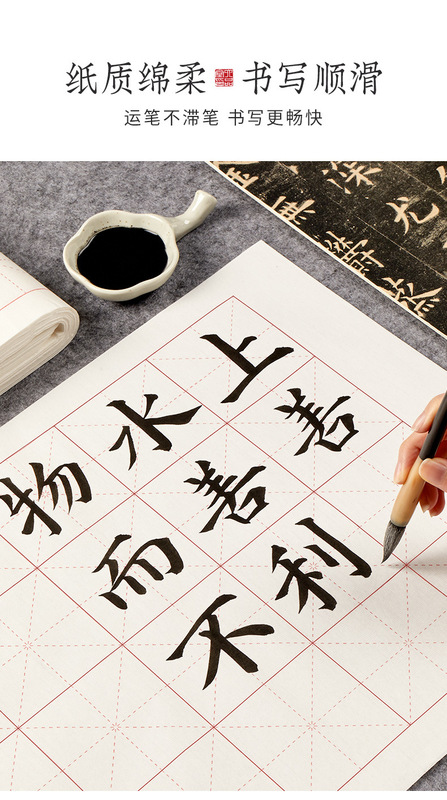 纸质绵柔 书写顺滑
运笔不滞笔 书写更畅快
上善
水善利
物而不
深
尤